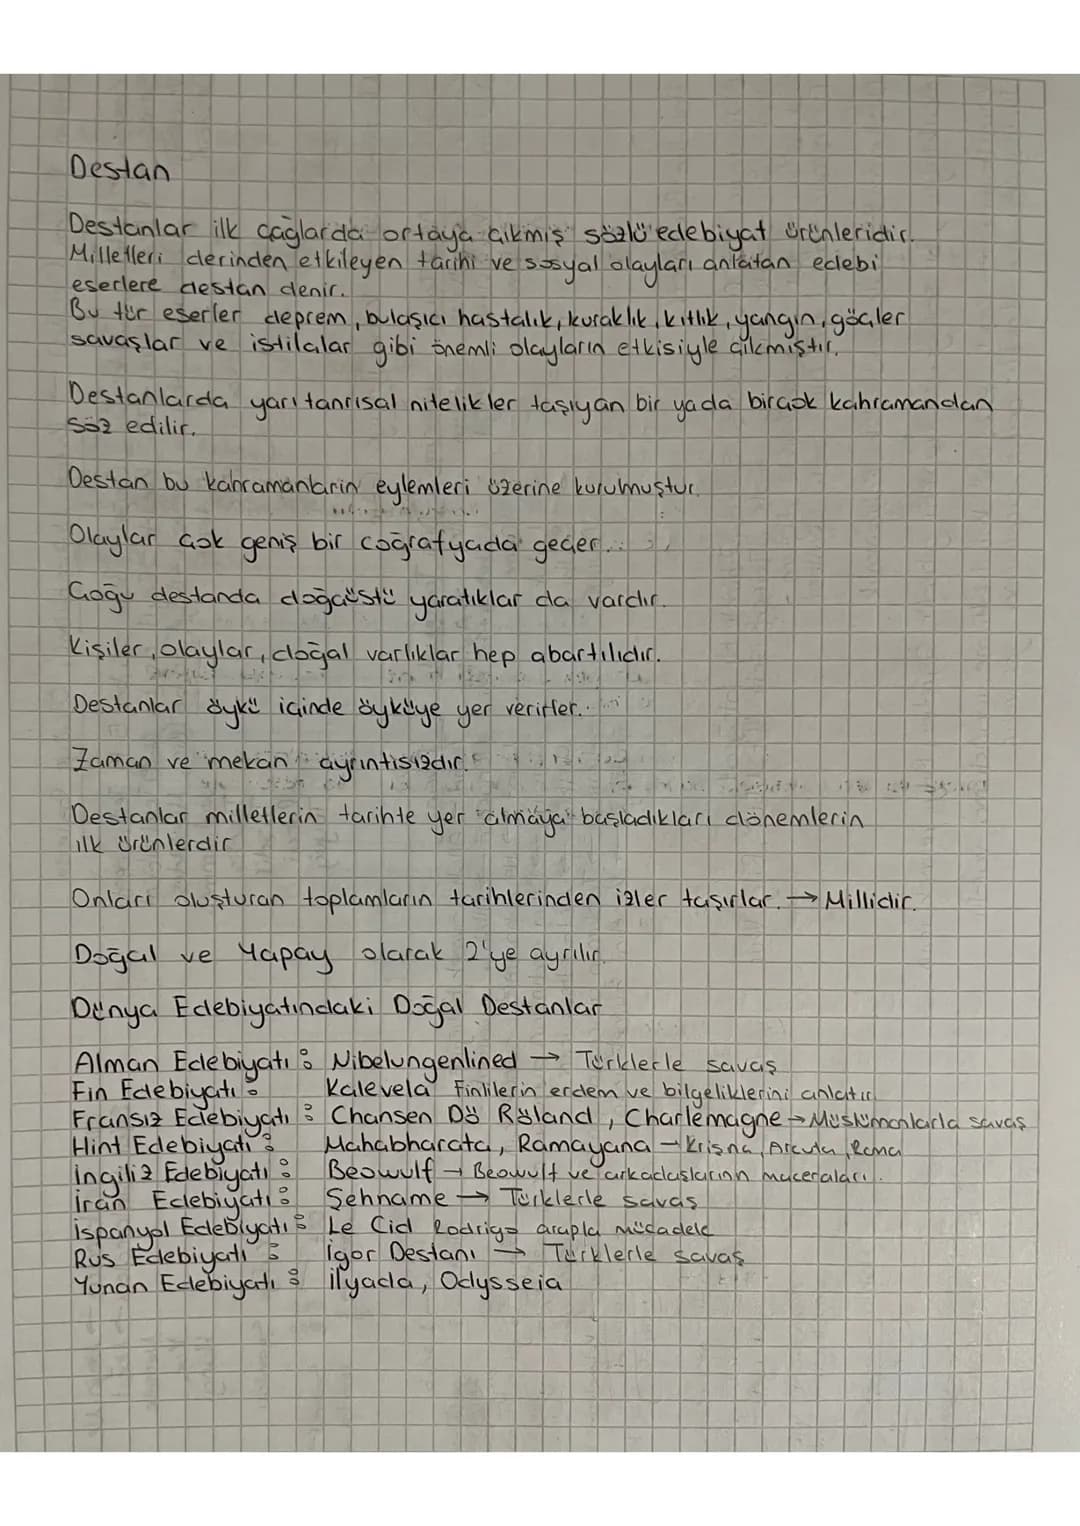 Destan
Destanlar ilk çağlarda ortaya çıkmış sözlü edebiyat ürünleridir.
Milletleri derinden etkileyen tarihi ve sosyal olayları anlatan edebi
eserlere destan denir.
Bu tür eserler deprem, bulaşıcı hastalık, kuraklık, kıtlık, yangın, göçler
savaşlar ve istilalar gibi önemli olayların etkisiyle çıkmıştır.
Destanlarda yarı tanrısal nitelikler taşıyan bir yada birçok kahramandan
söz edilir.
Destan bu kahramanların eylemleri üzerine kurulmuştur.
Olaylar çok geniş bir coğrafyada geçer.
Çoğu destanda doğaüstü yaratıklar da vardır.
Kişiler, olaylar, doğal varlıklar hep abartılıdır.
Destanlar öykü içinde öyküye yer verirler.
Zaman ve mekan ayrıntısızdır.
Destanlar milletlerin tarihte yer almaya başladıkları dönemlerin
ilk ürünlerdir
Onları oluşturan toplamların tarihlerinden izler taşırlar. → Millidir.
Doğal ve Yapay olarak 2'ye ayrılır.
Dünya Edebiyatındaki Doğal Destanlar
Alman Edebiyatı : Nibelungenlined → Türklerle savaş
Fin Edebiyatı : Kalevela Finlilerin erdem ve bilgeliklerini anlatır
Fransız Edebiyatı : Chansen Dö Röland, Charlemagne → Müslümanlarla savaş
Hint Edebiyatı : Mahabharata, Ramayana → Krişna, Arcuta, Rama
İngiliz Edebiyatı : Beowulf → Beowulf ve arkadaşlarının maceraları.
İran Edebiyatı : Şehname → Türklerle savaş
İspanyol Edebiyatı : Le Cid Rodrigo arapla mücadele
Rus Edebiyatı : İgor Destanı → Türklerle savaş
Yunan Edebiyatı : İlyada, Odysseia